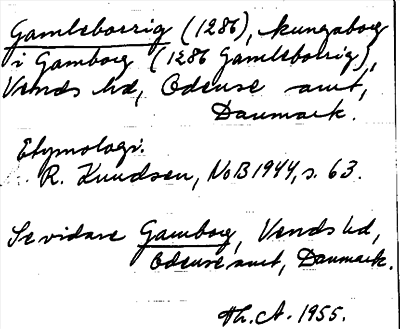 Gamleborrig (1286), kungaborg
i Gamborg (1286 Gamleborrig),
Vends hd, Odense amt,
Danmark.
Etymologi.
R. Knudsen, NoB 1944, s. 63.
Se vidare Gamborg, Vends hd,
Odense amt, Danmark.
Th. A. 1955.